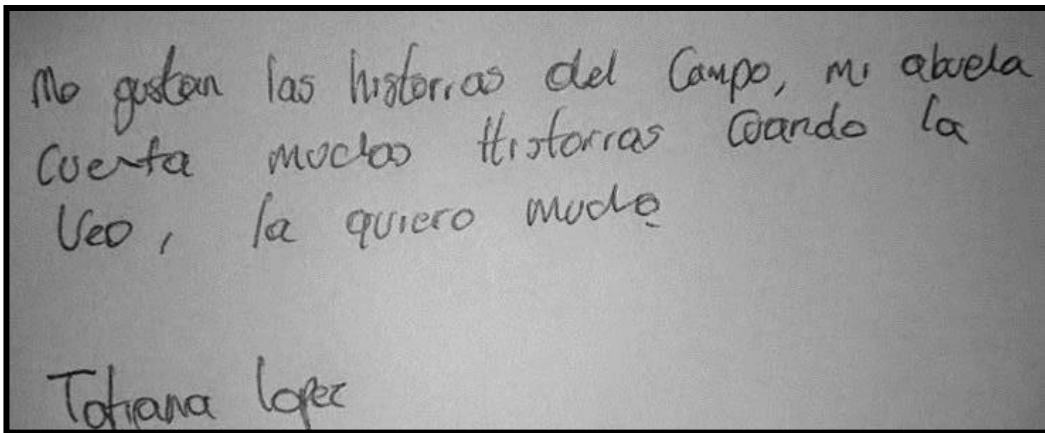 Me gustan las historias del Campo, mi abuela
Cuenta muchas Historias Cuando la
Veo, la quiero mucho
Tatiana Lopez